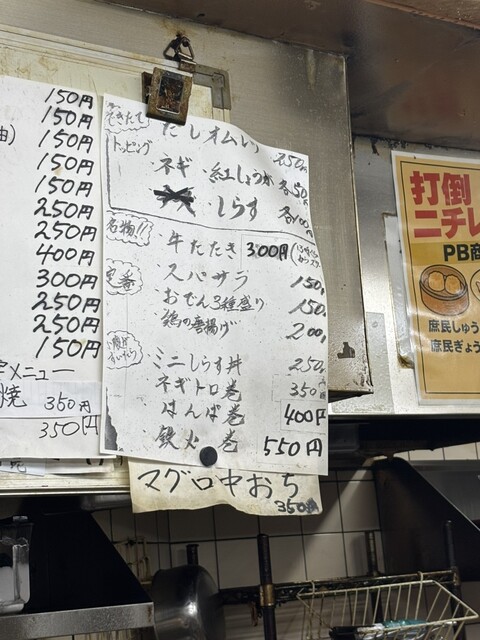 150円
150円
150円
150円
150円
250円
250円
400円
300円
250円
250円
150円
メニュー
焼 350円
350円
できたて だしオムレツ 250円
トッピング
ネギ ・紅しょうが 各50円
・しらす 各100円
名物!! 牛たたき 300円
定番 スパサラ 150円
おでん3種盛り 150円
鶏の唐揚げ 200円
ミニしらす丼 250円
ネギトロ巻 350円
はんぱ巻 400円
鉄火巻 550円
マグロ中おち
350円
打倒
ニチレ
PB商
庶民しゅう
庶民ぎょう